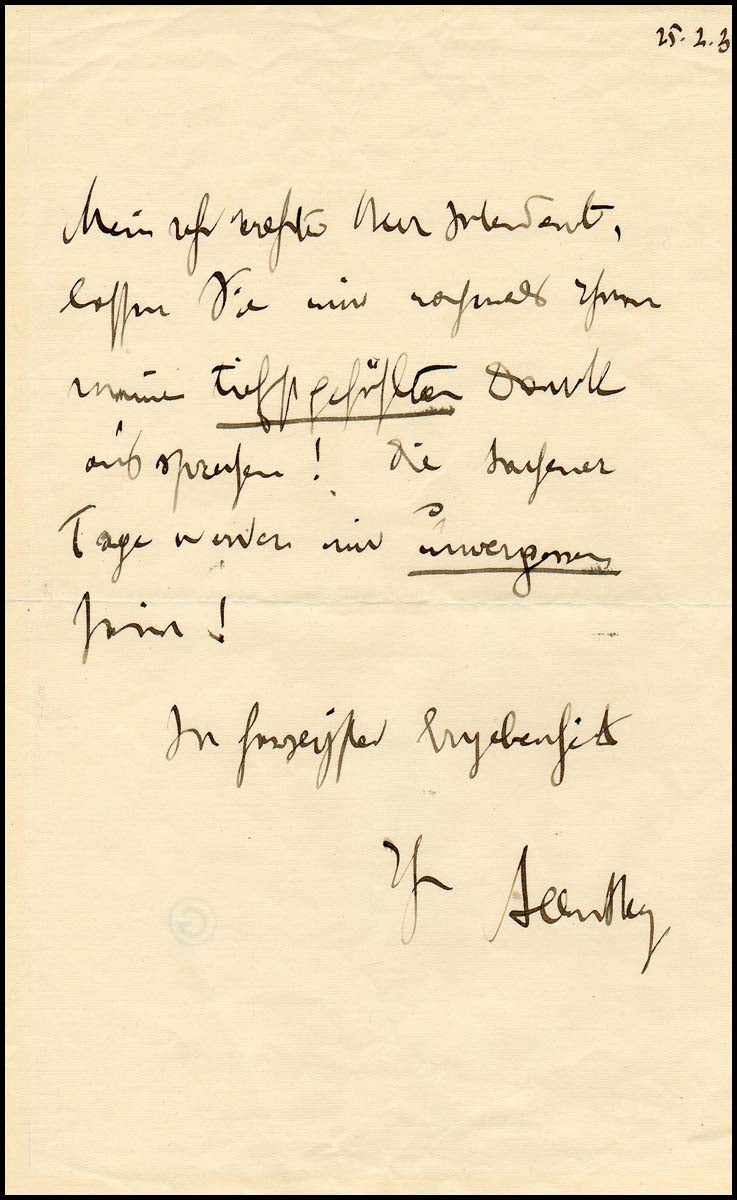 25. 2. 3
Mein sehr verehrter Herr Intendant,
lassen Sie mir nochmals Ihnen
meinen tiefstgefühlten Dank
aussprechen! Die Aachener
Tage werden mir unvergessen
sein!
In herzlichster Ergebenheit
Ihr Alban Berg